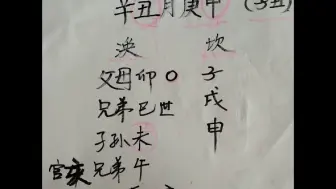 辛丑月庚申(子丑)
泱 坎
父母卯〇 子
兄弟巳世 戌
子孙未 申
宫亥兄弟午